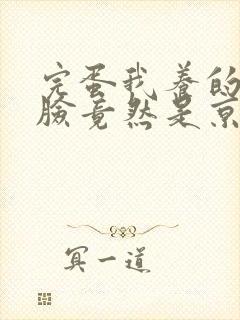 完蛋我养的
脸竟然是京
冥一道